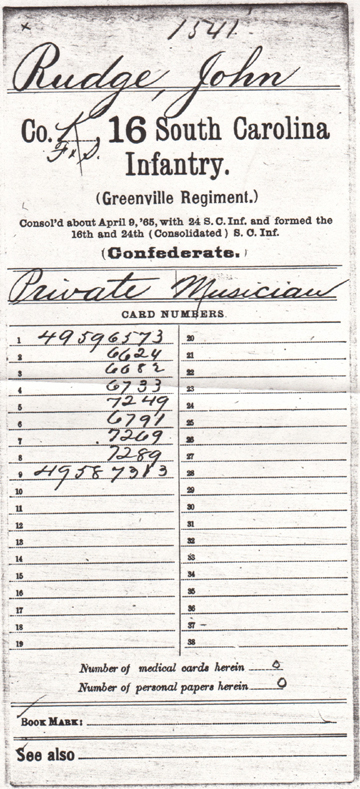 x 1541
Rudge, John
Co. F & S. 16 South Carolina
Infantry.
(Greenville Regiment.)
Consol'd about April 9, '65, with 24 S. C. Inf. and formed the
16th and 24th (Consolidated) S. C. Inf.
(Confederate.)
Private Musician
CARD NUMBERS.
1 49596573 20
2 6624 21
3 6682 22
4 6733 23
5 7249 24
6 6791 25
7 7269 26
8 7289 27
9 49587313 28
10 29
11 30
12 31
13 32
14 33
15 34
16 35
17 36
18 37
19 38
Number of medical cards herein 0
Number of personal papers herein 0
BOOK MARK:
See also